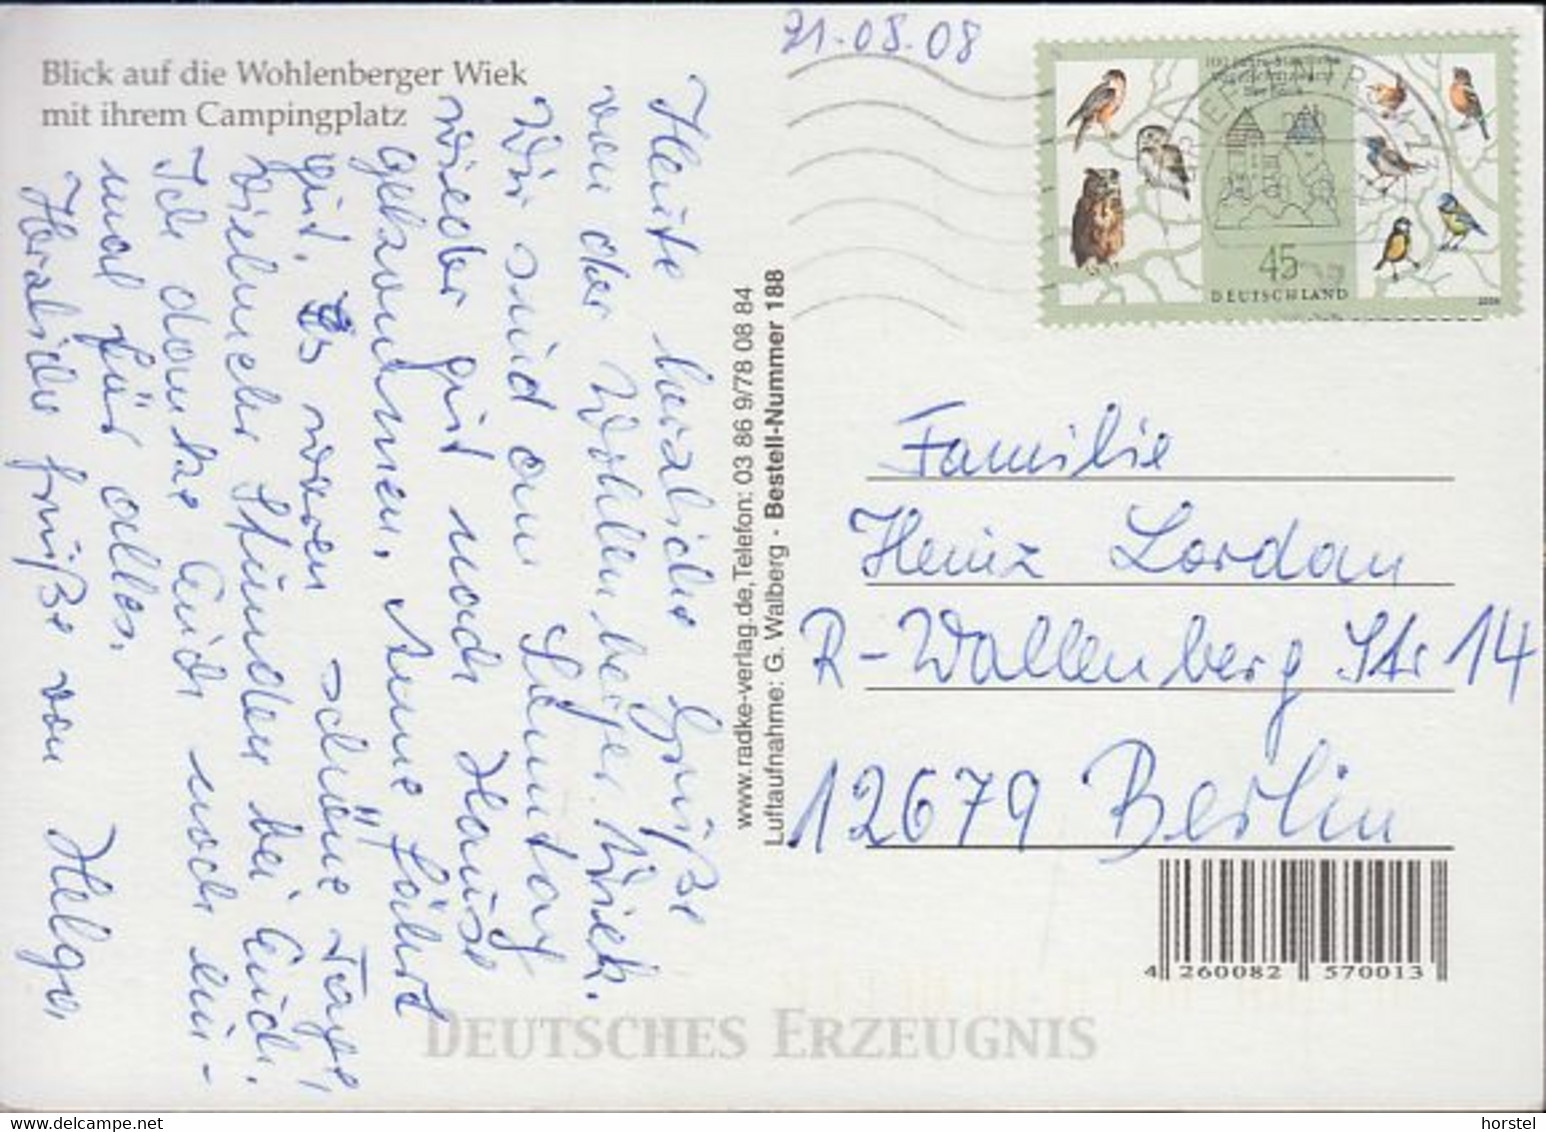 Blick auf die Wohlenberger Wiek
mit ihrem Campingplatz
21.05.08
Heute herzliche Grüße
von der Wohlenberger Wiek.
Wir sind am Sonntag
wieder gut nach Hause
gekommen. Anne fährt
gut. Es waren schöne Tage,
vielmehr Stunden bei Euch.
Ich danke Euch noch ein-
mal für alles.
Herzliche Grüße von Helga
www.radke-verlag.de, Telefon: 03 86 9/78 08 84
Luftaufnahme: G. Walberg · Bestell-Nummer 188
45
DEUTSCHLAND
Familie
Heinz Lordan
R-Wallenberg Str 14
12679 Berlin
4 260082 570013
DEUTSCHES ERZEUGNIS
horstel